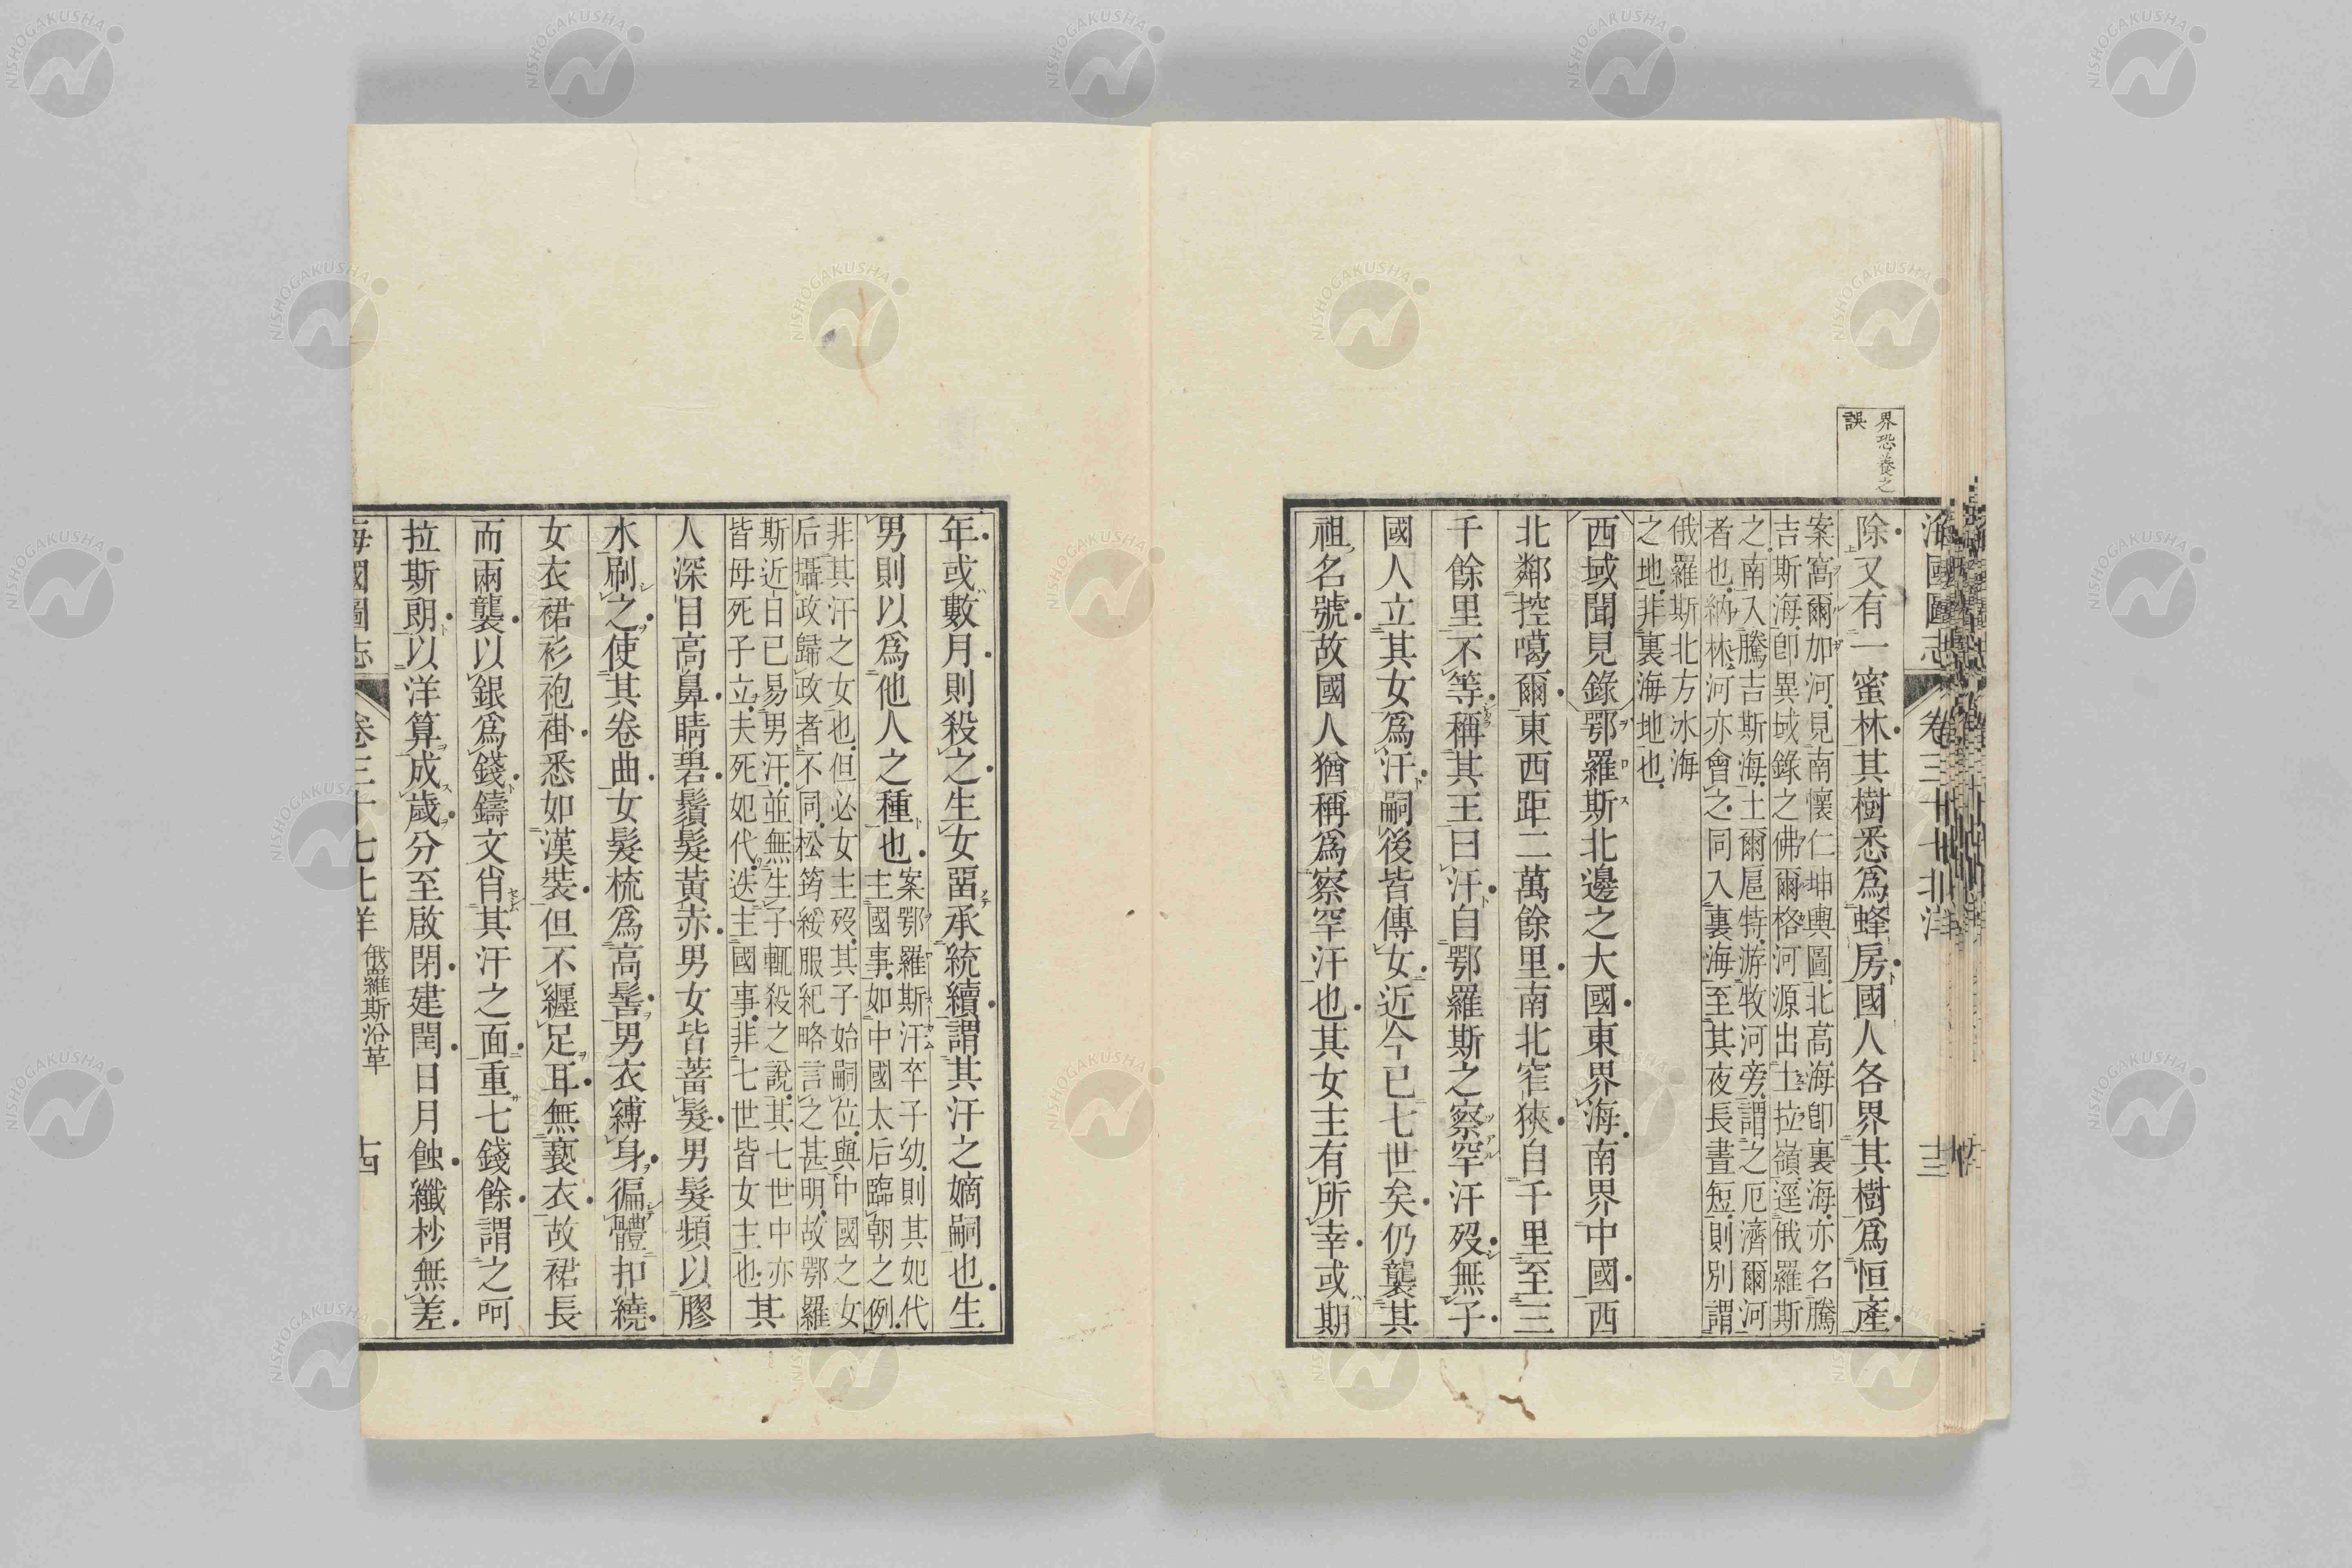 界恐養之
誤
海國圖志 卷三十七北洋 十三
除又有一蜜林其樹悉爲蜂房國人各界其樹爲恒產
案窩爾加河見南懷仁坤輿圖北高海卽裏海亦名騰
吉斯海卽異域錄之佛爾格河源出土拉嶺逕俄羅斯
之南入騰吉斯海土爾扈特游牧河旁謂之厄濟爾河
者也納林河亦會之同入裏海至其夜長晝短則別謂
俄羅斯北方冰海
之地非裏海地也
西域聞見錄鄂羅斯北邊之大國東界海南界中國西
北鄰控噶爾東西距二萬餘里南北窄狹自千里至三
千餘里不等稱其王曰汗自鄂羅斯之察罕汗歿無子
國人立其女爲汗嗣後皆傳女近今已七世矣仍襲其
祖名號故國人猶稱爲察罕汗也其女主有所幸或期
年或數月則殺之生女畱承統續謂其汗之嫡嗣也生
男則以爲他人之種也
案鄂羅斯汗卒子幼則其妃代
主國事如中國太后臨朝之例
非其汗之女也但必女主歿其子始嗣位與中國之女
后攝政歸政者不同松筠綏服紀略言之甚明故鄂羅
斯近日已易男汗並無生子輒殺之說其七世中亦
皆毋死子立夫死妃代迭主國事非七世皆女主也
其
人深目高鼻睛碧鬚髮黃赤男女皆蓄髮男髮頻以膠
水刷之使其卷曲女髮梳爲高髻男衣縛身徧體扣繞
女衣裙衫袍褂悉如漢裝但不纏足耳無褻衣故裙長
而兩襲以銀爲錢鑄文肖其汗之面重七錢餘謂之呵
拉斯朗以洋算成歲分至啟閉建閏日月蝕纖杪無差
海國圖志 卷三十七北洋 俄羅斯沿革 十四